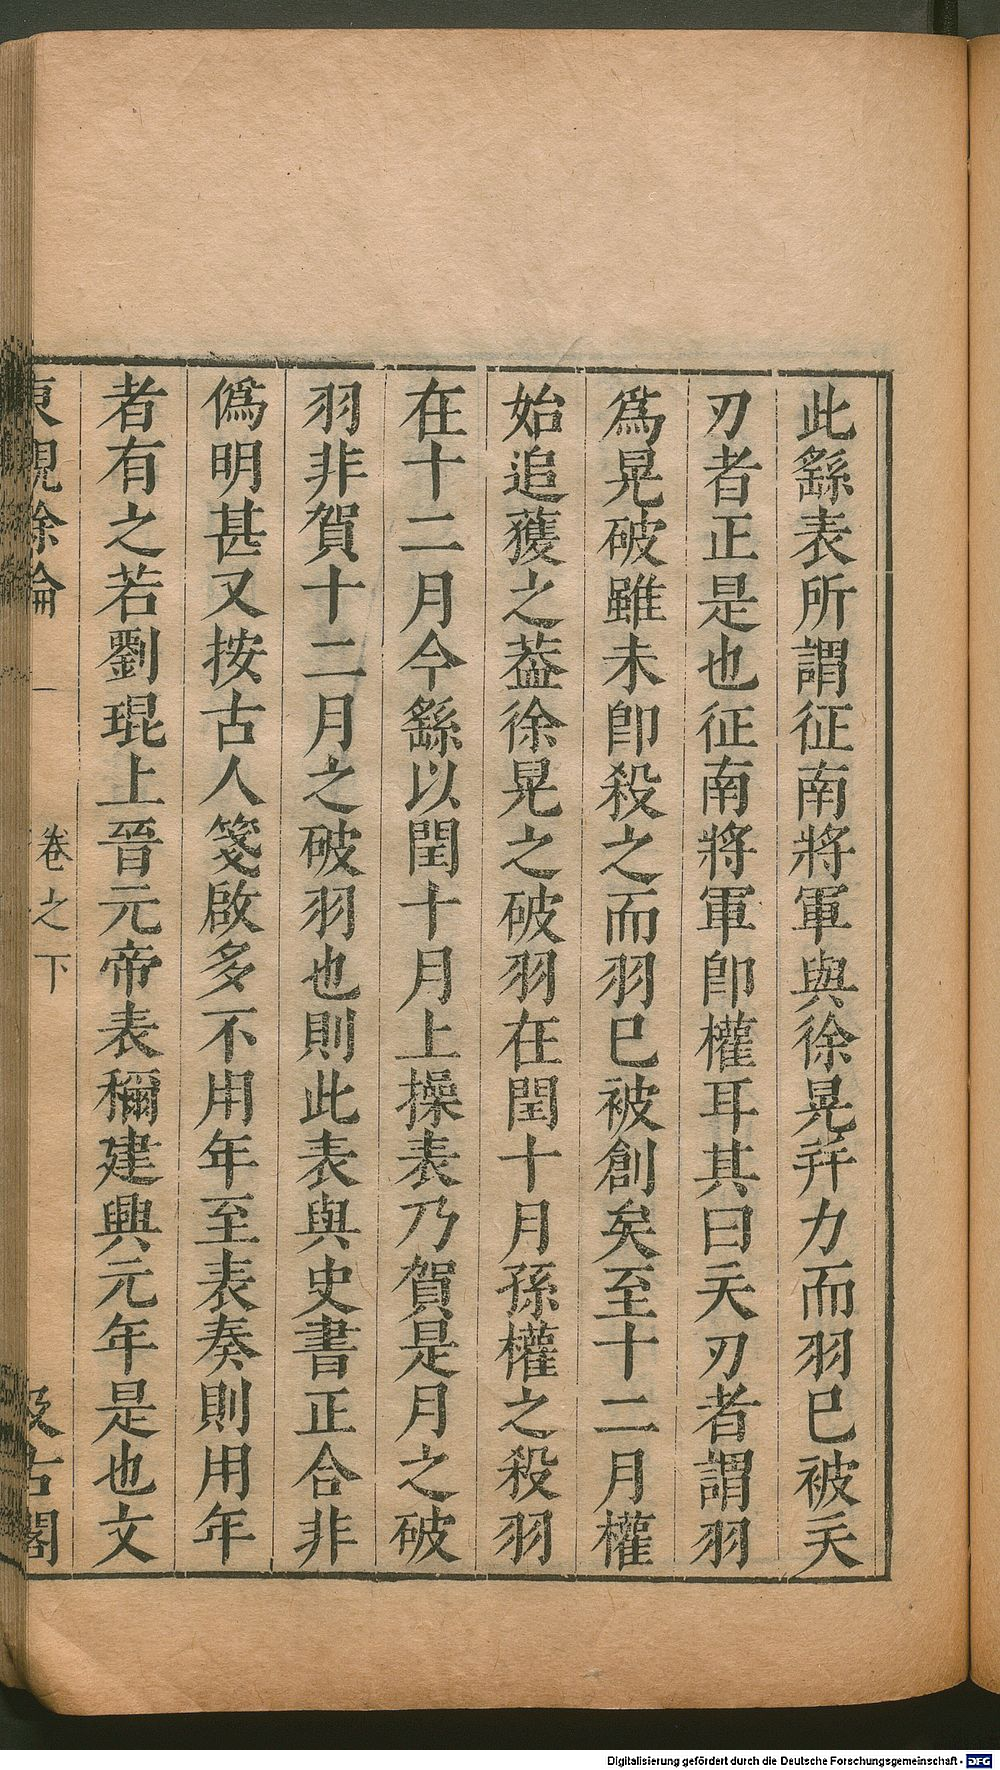 此繇表所謂征南將軍與徐晃幷力而羽已被天
刃者正是也征南將軍卽權耳其曰天刃者謂羽
爲晃破雖未卽殺之而羽已被創矣至十二月權
始追獲之葢徐晃之破羽在閏十月孫權之殺羽
在十二月今繇以閏十月上操表乃賀是月之破
羽非賀十二月之破羽也則此表與史書正合非
僞明甚又按古人箋啟多不用年至表奏則用年
者有之若劉琨上晉元帝表稱建興元年是也文
東觀餘論 卷之下 汲古閣
Digitalisierung gefördert durch die Deutsche Forschungsgemeinschaft - DFG